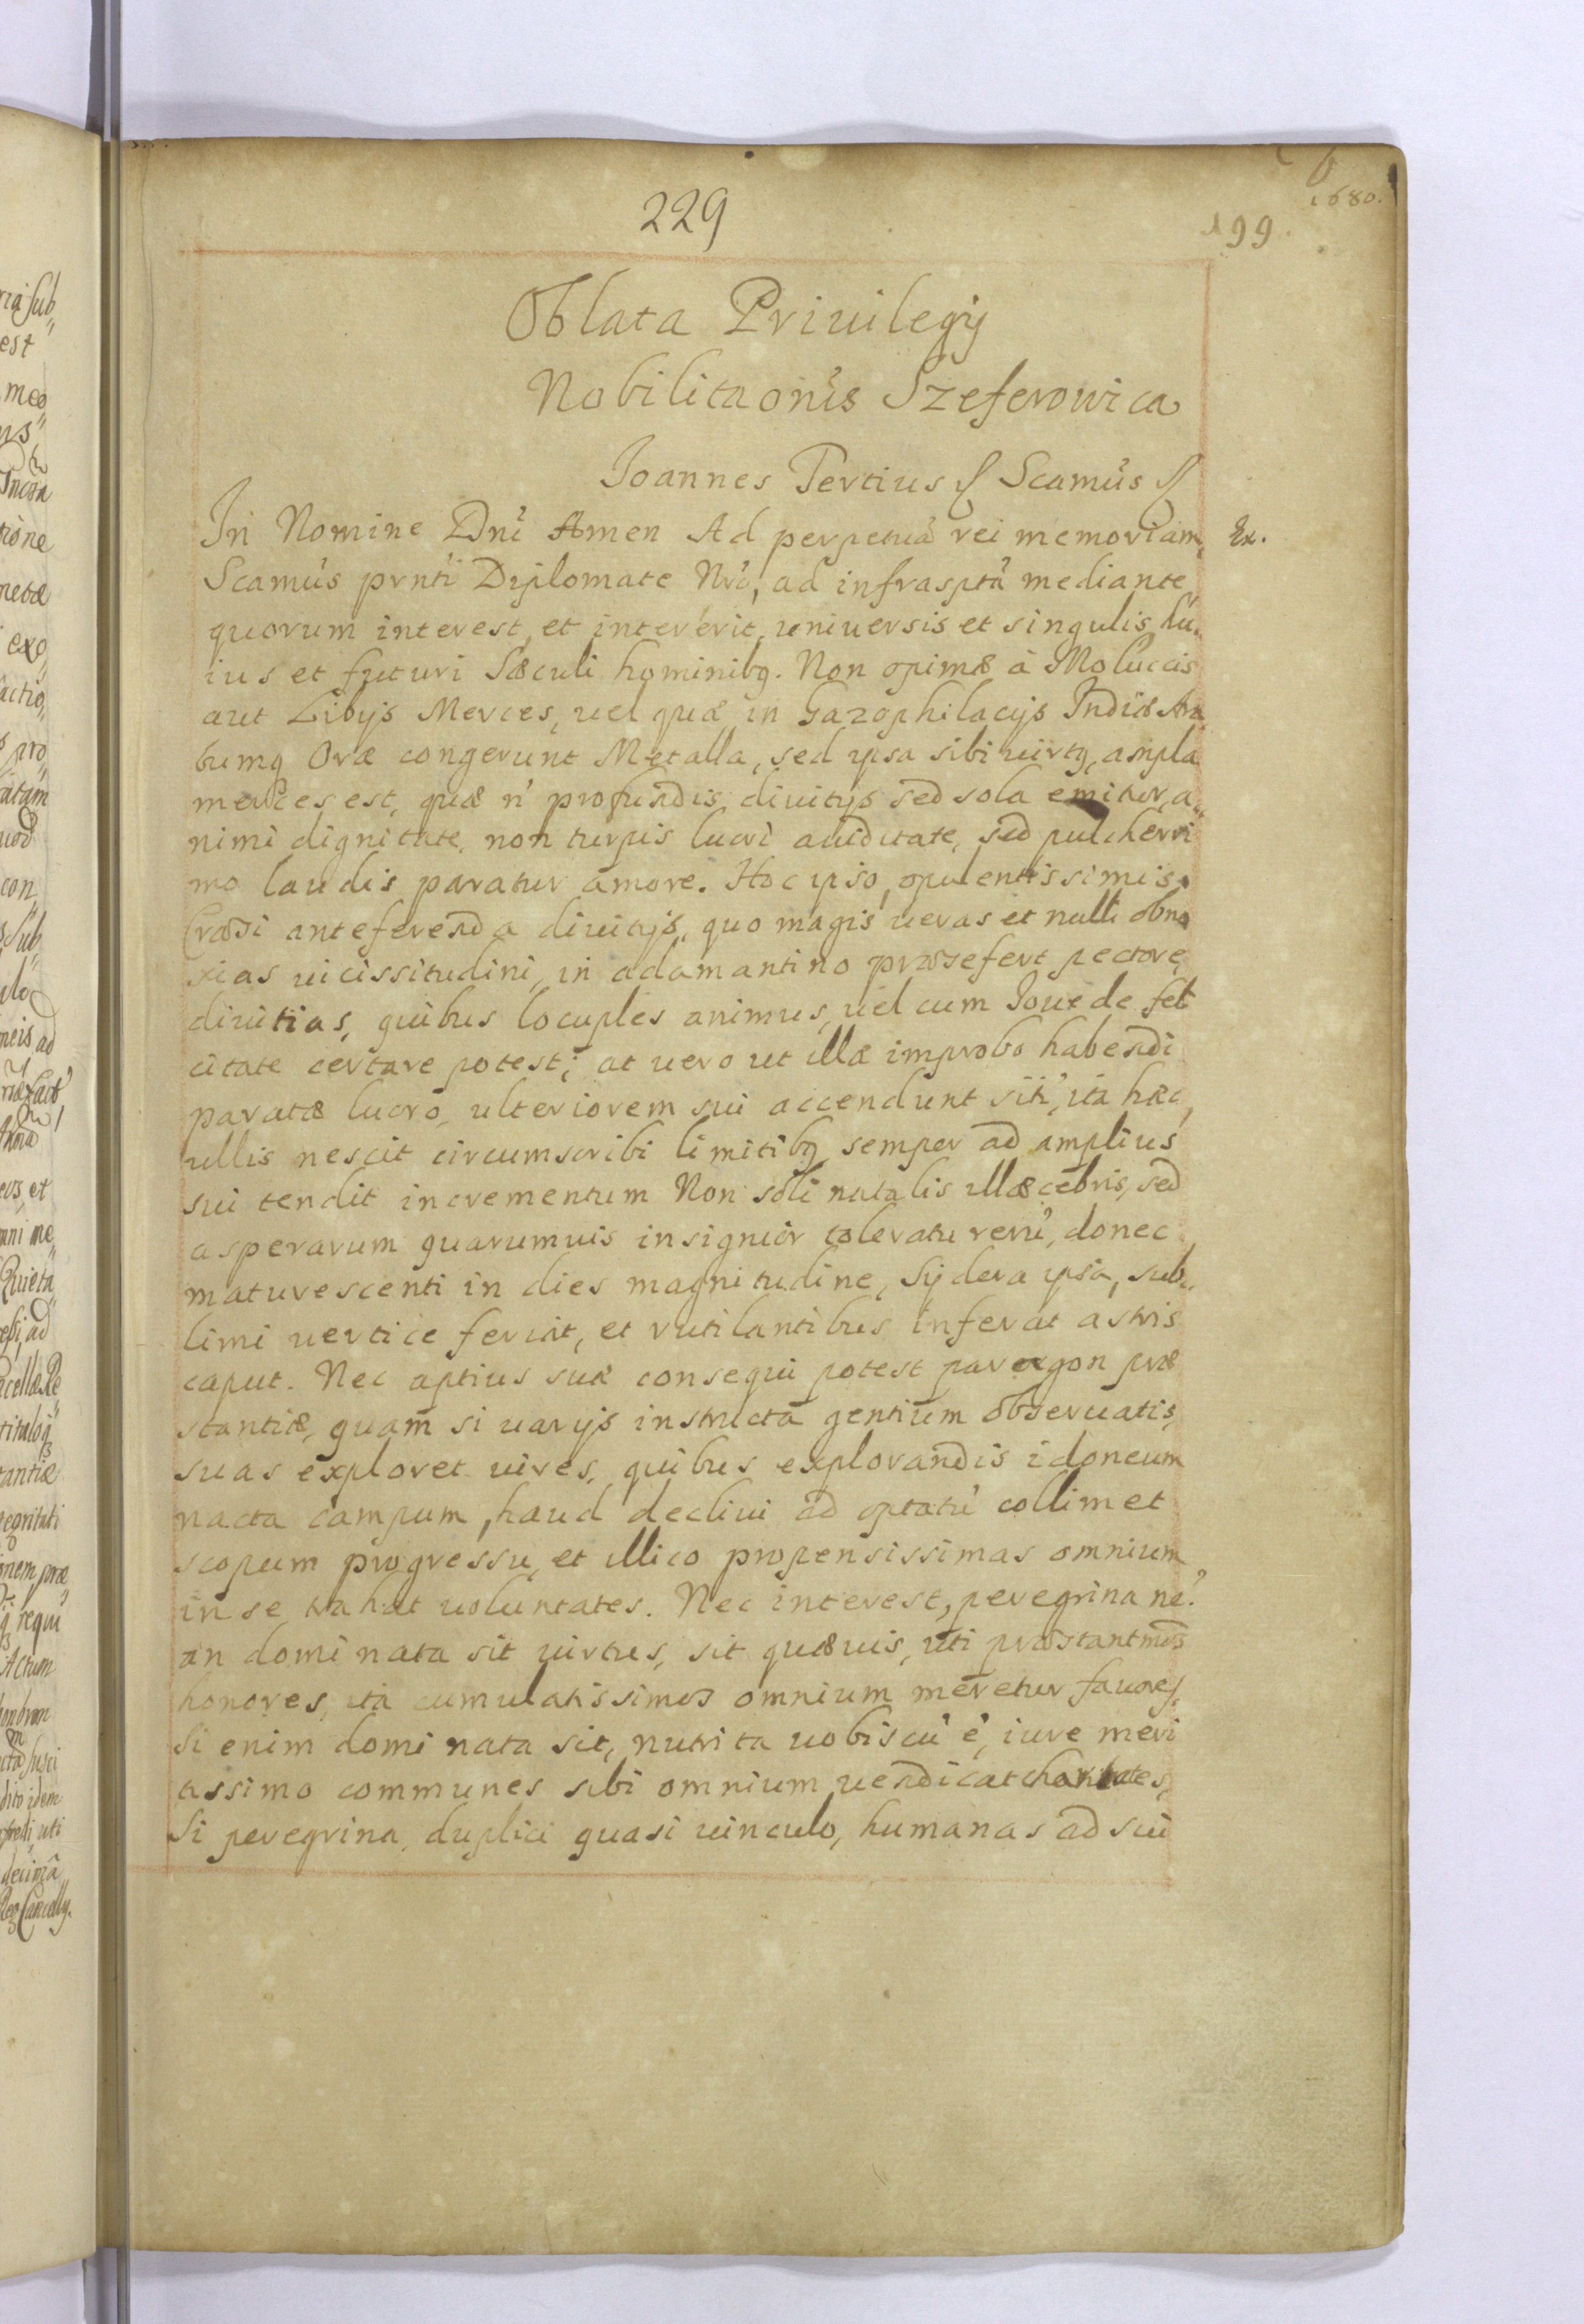 229
1680.
199.
Oblata Priuilegÿ
Nobilitaonis Szeferowica
Joannes Tertius Scamus
In Nomine Dni Amen Ad perpetuā rei memoriam Ex.
Scamus prnti Diplomate Nro, ad infrasptā mediante
quorum interest, et intererit, uniuersis et singulis hu„
ius et futuri Sæculi hominibq. Non opimæ à Moluccis
aut Libÿs Merces, uel quæ in Gazophilacÿs Indiæ Ara
bumq Oræ congerunt Metalla, sed ipsa sibi uirtq, ampla
merces est, quæ n profundis diuitÿs sed sola emitur, a„
nimi dignitate, non turpis lucri auiditate, sed pulcherri
mo laudis paratur amore. Hoc ipso, opulentissimis
Cræsi anteferenda diuitÿs, quo magis ueras et nulli obno
xias uicissitudini, in adamantino præsefert pectore,
diuitias, quibus locuples animus, uel cum Joue de feli
citate certare potest; at uero ut illæ improbo habendi
paratæ lucro, ulteriorem sui accendunt siti, ita hæc,
ullis nescit circumscribi limitibq semper ad amplius
sui tendit incrementum Non soli natalis illæcebris, sed
asperarum quarumuis insignior toleratu rerū, donec
maturescenti in dies magnitudine, Sÿdera ipsa, sub„
limi uertice feriat, et rutilantibus inferat astris
caput. Nec aptius suæ consequi potest parergon præ
stantiæ, quam si uarÿs instructa gentium obseruatis,
suas exploret uires, quibus explorandis idoneum
nacta campum, haud decliui ad optatū collimet
scopum progressu, et illico propensissimas omnium
in se trahat uoluntates. Nec interest, peregrina ne?
an domi nata sit uirtus, sit quæuis, uti præstantmos
honores, ita cumulatissimos omnium meretur fauores,
Si enim domi nata sit, nutrita uobiscū ē, iure meri
tissimo communes sibi omnium uendicat charitates,
Si peregrina, duplici quasi uinculo, humanas ad sui